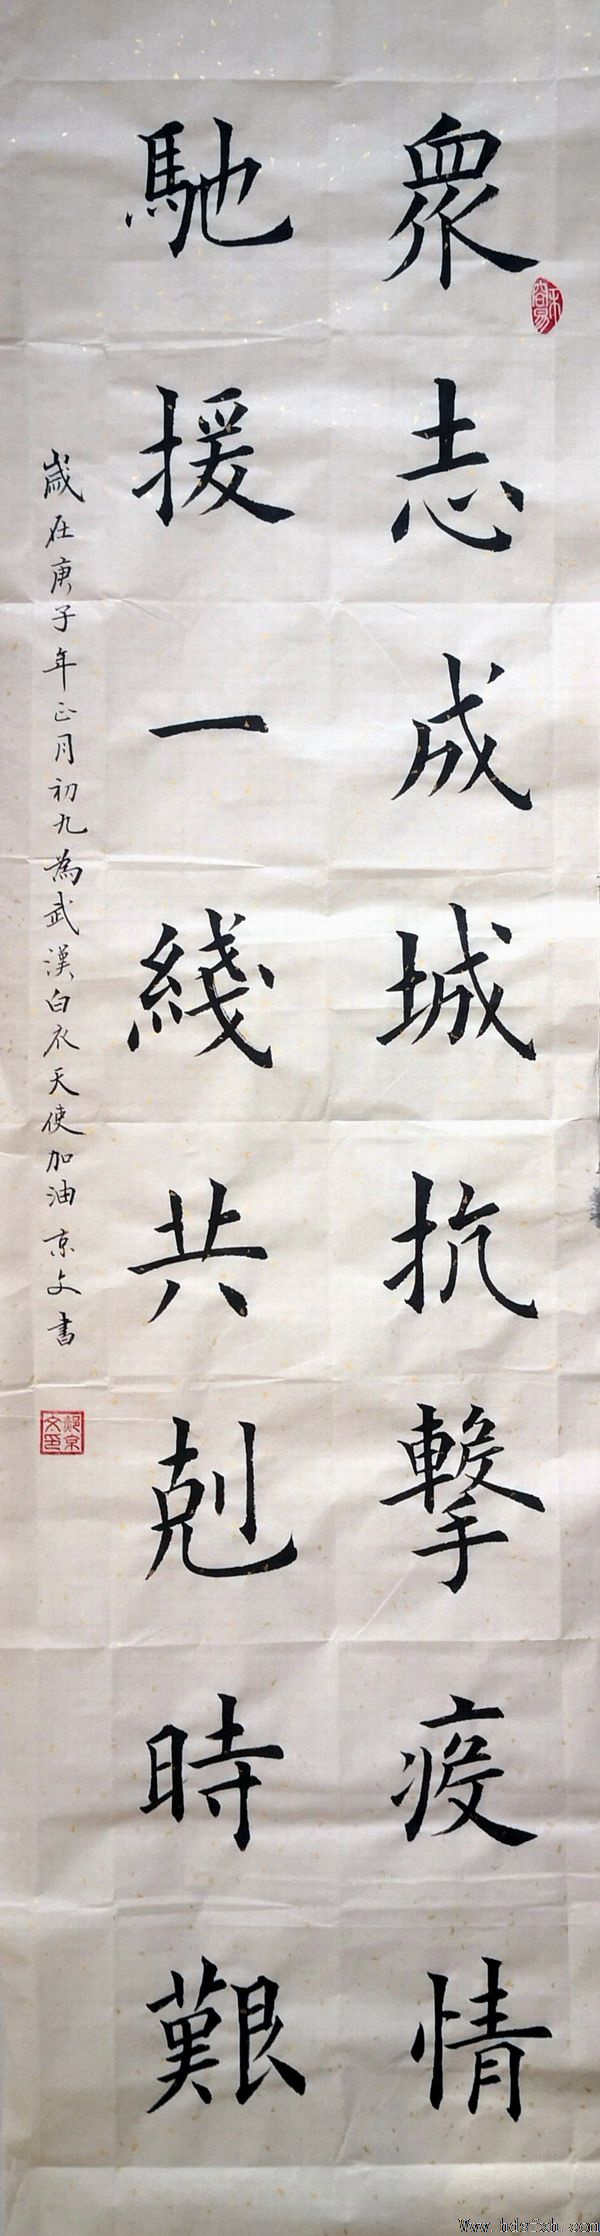 眾志成城抗擊疫情
馳援一綫共剋時艱
歲在庚子年正月初九為武漢白衣天使加油 京文書
Www.hdsfxh.com